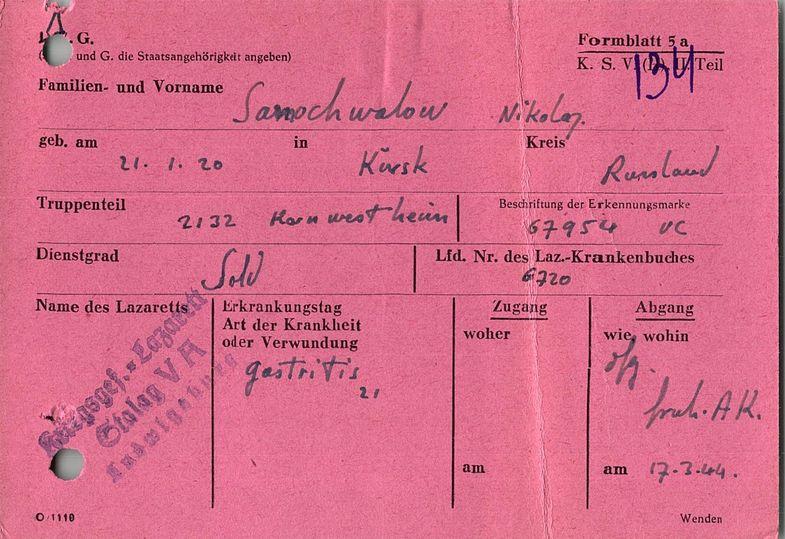 G.
und G. die Staatsangehörigkeit angeben)
Formblatt 5 a
K. S. V. Teil
134
Familien- und Vorname
Samochwalow Nikolaj
geb. am 21. 1. 20 in Kursk Kreis Russland
Truppenteil 2132 Kornwestheim
Beschriftung der Erkennungsmarke
67954 VC
Dienstgrad Sold
Lfd. Nr. des Laz.-Krankenbuches
6720
Name des Lazaretts
Kriegsgef.-Lazarett
Stalag V A
Ludwigsburg
Erkrankungstag
Art der Krankheit
oder Verwundung
gastritis
21
Zugang
woher
am
Abgang
wie, wohin
A K.
am 17.3.44.
O/1110
Wenden